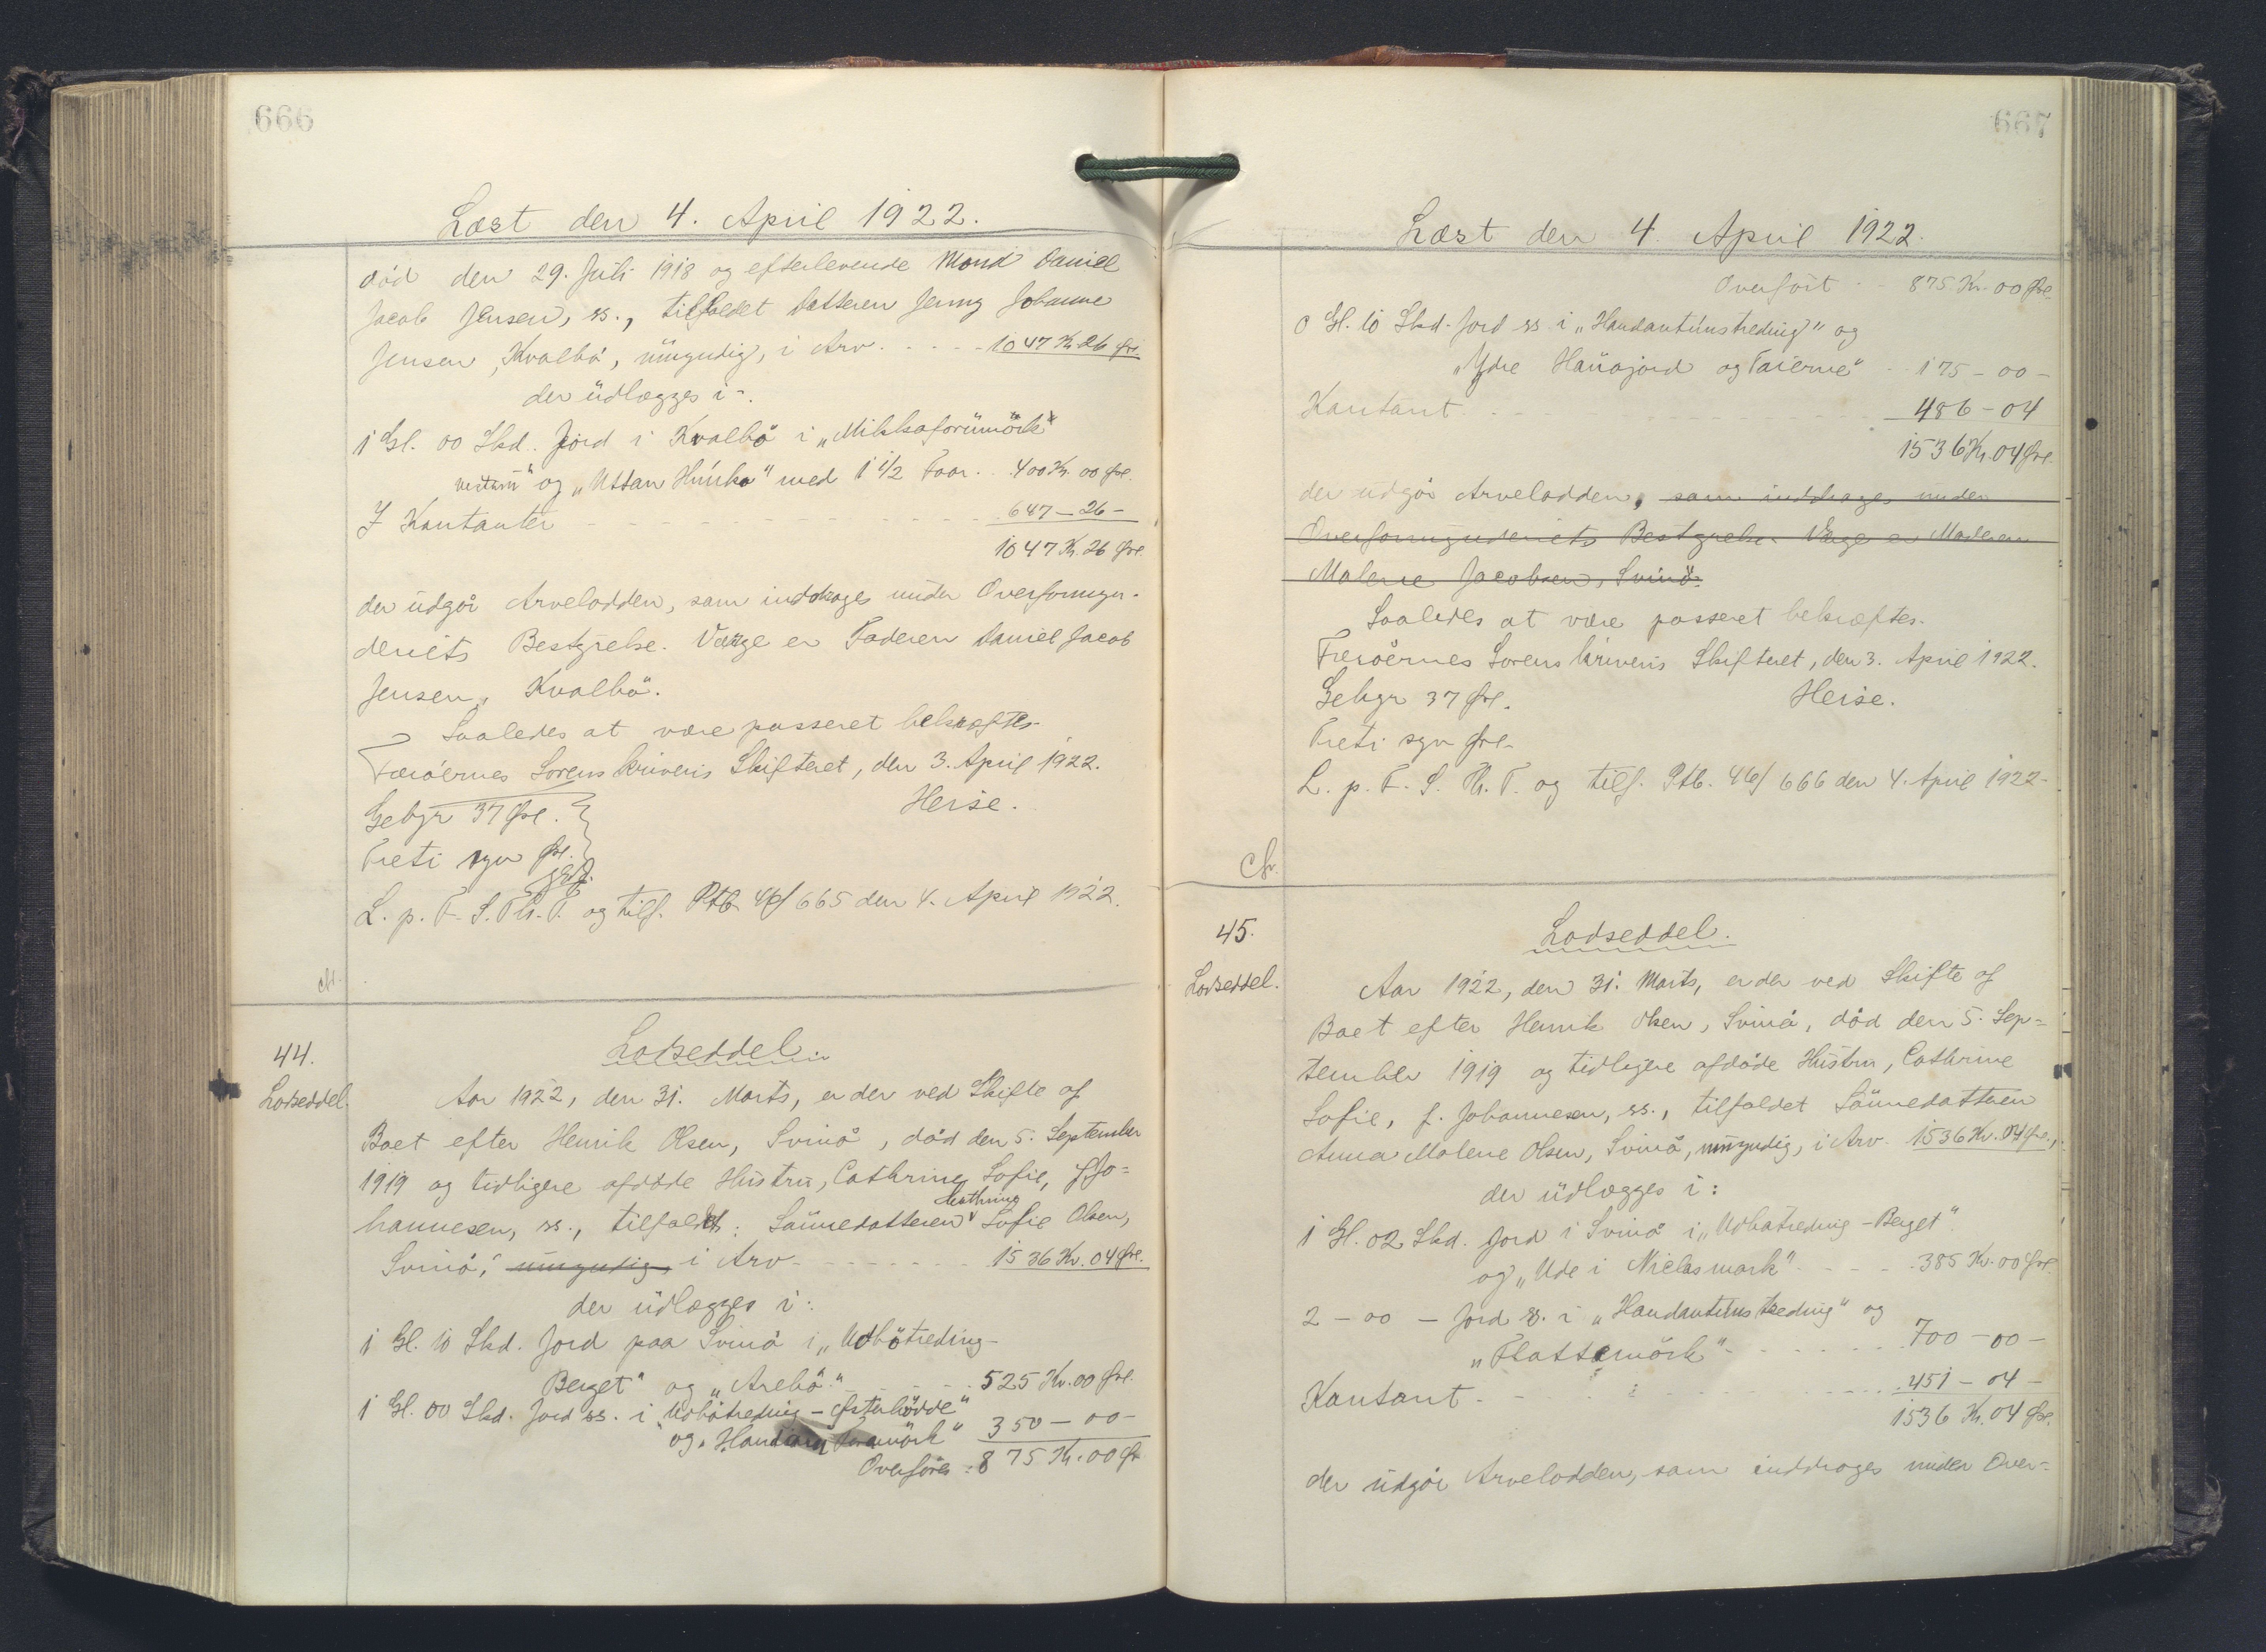 666
Læst den 4. April 1922.
död den 29. Juli 1918 og efterlevende Mand Daniel
Jacob Jensen, ss., tilfaldet Datteren Jenny Johanne
Jensen, Kvalbö, umyndig, i Arv. - - - - 1047 Kr. 26 Øre.
der udlægges i -.
1 Gl. 00 Skd. Jord i Kvalbö i „Mikkaforumörk
vestari" og „Uttan Húska" med 1 1/2 Faar. . 400 Kr. 00 Øre.
I Kontanter - - - - - - - - - 647 - 26 -
1047 Kr. 26 Øre.
der udgör Arvelodden, som inddrages under Overformyn-
deriets Bestyrelse. Værge er Faderen Daniel Jacob
Jensen, Kvalbö.
Saaledes at være passeret bekræftes.
Færöernes Sorenskriveris Skifteret, den 3. April 1922.
Gebyr 37 Øre. Heise.
Treti syv Øre.
L. p. F. S. Th. T. og tilf. Ptb. 46/665 den 4. April 1922.
44.
Lodseddel.
Lodseddel.
Aar 1922, den 31. Marts, er der ved Skifte af
Boet efter Henrik Olsen, Svinö, död den 5. September
1919 og tidligere afdöde Hustru, Cathrine Sofie, f. Jo=
hannesen, ss., tilfaldet: Sönnedatteren Cathrine Sofie Olsen,
Svinö, umyndig, i Arv - - - - - - - 1536 Kr. 04 Øre.
der udlægges i:
1 Gl. 10 Skd. Jord paa Svinö i „Udbötreding-
Berget" og „Arebö." - - - - 525 Kr. 00 Øre.
1 Gl. 00 Skd. Jord ss. i "Udbötreding - Østurhövde"
og „ 350 - 00 -
Overföres : 875 Kr. 00 Øre
667
Læst den 4. April 1922.
Overfört - - 875 Kr. 00 Øre
0 Gl. 10 Skd. Jord ss i „Handantúnstreding" og
„Ydre Hauajord og Taierne" - 175 - 00 -
Kontant. - - - - - - 486 - 04
1536 Kr. 04 Øre.
der udgör Arvelodden, som inddrages under
Overformynderiets Bestyrelse. Værge er Moderen
Malene Jacobsen, Svinö.
Saaledes at være passeret bekræftes.
Færöernes Sorenskriveris Skifteret, den 3. April 1922.
Gebyr 37 Øre. Heise.
Treti syv Øre.
L. p. F. S. Th. T. og tilf. Ptb. 46/666 den 4. April 1922.
45.
Lodseddel.
Lodseddel.
Aar 1922, den 31. Marts, er der ved Skifte af
Boet efter Henrik Olsen, Svinö, död den 5. Sep=
tember 1919 og tidligere afdöde Hustru, Cathrine
Sofie, f. Johannesen, ss., tilfaldet Sönnedatteren
Anna Malene Olsen, Svinö, umyndig, i Arv 1536 Kr. 04 Øre.,
der udlægges i:
1 Gl. 02 Skd. Jord i Svinö i „Udbötreding - Berget"
og „Ude i Niclasmark" - - - - 385 Kr. 00 Øre.
2 - 00 - Jord ss. i „Handantúnstreding" og
„Flattemörk" - - - - - - 700 - 00 -
Kontant - - - - - - - - 451 - 04 -
1536 Kr. 04 Øre.
der udgör Arvelodden, som inddrages under Over=